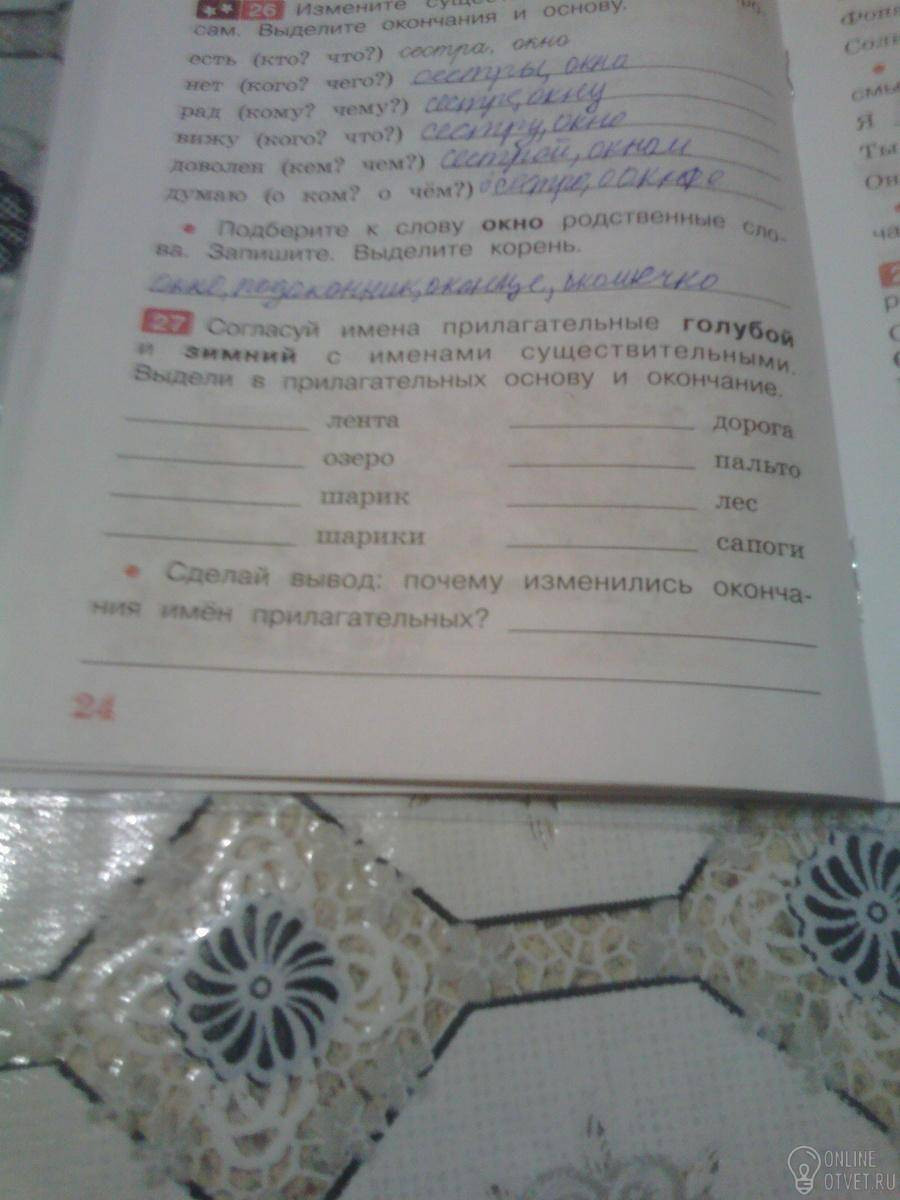 26 Измените
сам. Выделите окончания и основу.
есть (кто? что?) сестра, окно
нет (кого? чего?) сестры, окна
рад (кому? чему?) сестре, окну
вижу (кого? что?) сестру, окно
доволен (кем? чем?) сестрой, окном
думаю (о ком? о чём?) о сестре, о окне
• Подберите к слову окно родственные сло-
ва. Запишите. Выделите корень.
подоконник, оконце,
27 Согласуй имена прилагательные голубой
и зимний с именами существительными.
Выдели в прилагательных основу и окончание.
лента дорога
озеро пальто
шарик лес
шарики сапоги
• Сделай вывод: почему изменились оконча-
ния имён прилагательных?
24
Я
Ты
Он
ONLINE
OTVET.RU